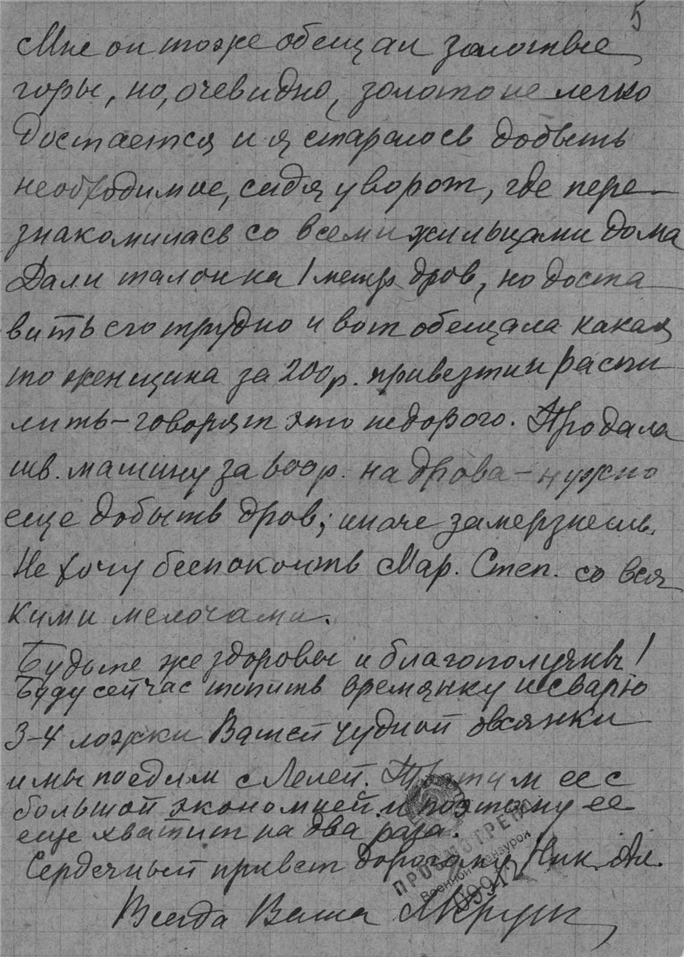 5
Мне он тоже обещал золотые
горы, но, очевидно, золото не легко
достается и я старалось добыть
необходимое, сидя у ворот, где пере-
знакомилась со всеми жильцами дома
Дали талон на 1 метр дров, но доста
вить его трудно и вот обещала какая
то женщина за 200 р. привезти и распи
лить – говорят это недорого. Продала
шв. машину за 600 р. на дрова – нужно
еще добыть дров; иначе замерзнешь.
Не хочу беспокоить Мар. Степ. со вся
кими мелочами.
Будьте же здоровы и благополучны!
Буду сейчас топить времянку и сварю
3-4 ложки Вашей чудной овсянки
и мы поедим с Лелей. Тратим ее с
большой экономией и поэтому ее
еще хватит на два раза.
Сердечный привет дорогому Ник. Ал.
ПРОСМОТРЕНО
Военной Цензурой
Всегда Ваша